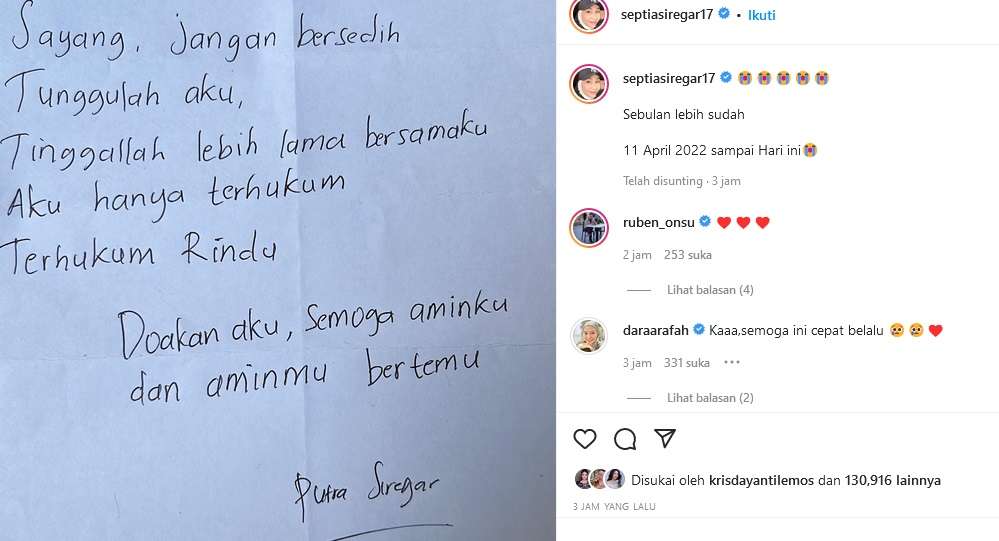 Sayang, jangan bersedih
Tunggulah aku,
Tinggallah lebih lama bersamaku
Aku hanya terhukum
Terhukum Rindu
Doakan aku, semoga aminku
dan aminmu bertemu
Putra Siregar
septiasiregar17 • Ikuti
septiasiregar17 😭😭😭😭😭
Sebulan lebih sudah
11 April 2022 sampai Hari ini😭
Telah disunting · 3 jam
ruben_onsu ♥ ♥ ♥
2 jam 253 suka
Lihat balasan (4)
daraarafah Kaaa,semoga ini cepat belalu 😢 😢 ♥
3 jam 331 suka •••
Lihat balasan (2)
Disukai oleh krisdayantilemos dan 130,916 lainnya
3 JAM YANG LALU